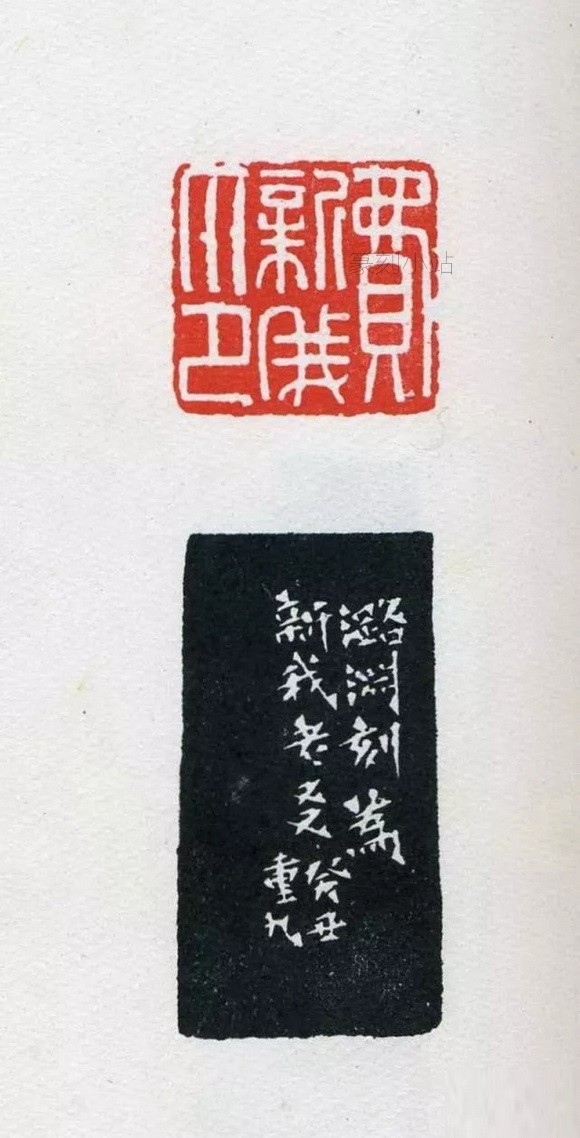 費新我印
篆刻小站
潞淵刻為
新我老兄癸丑
重九